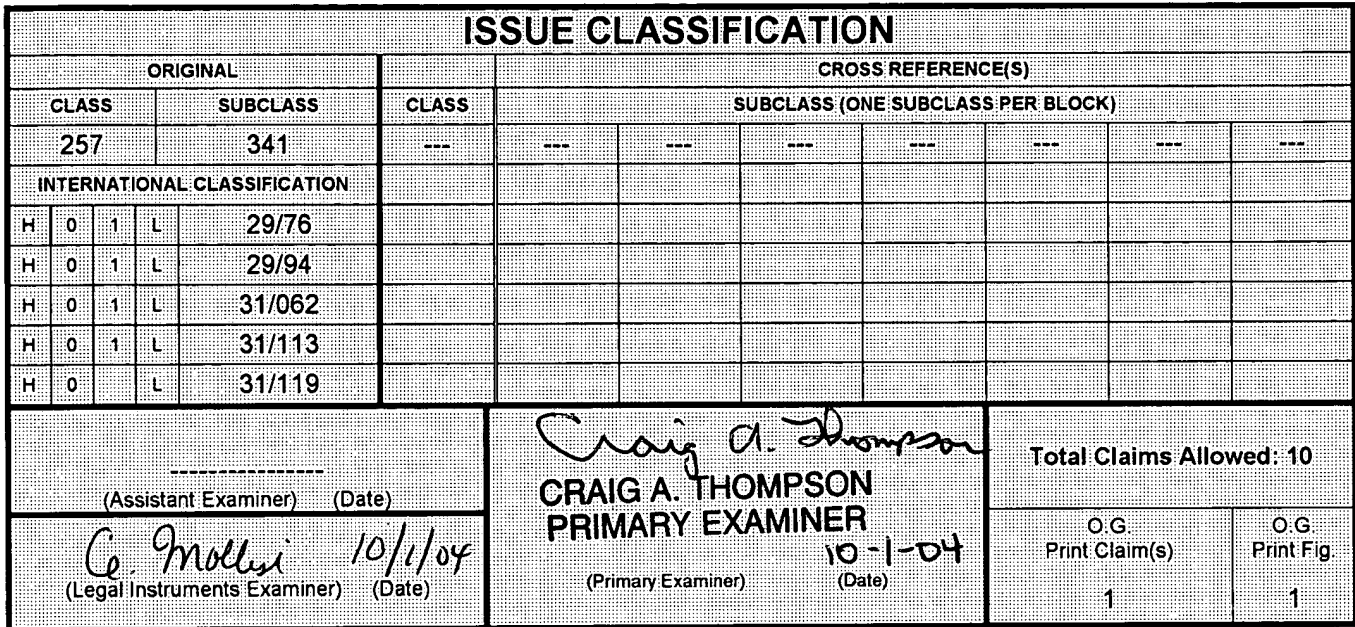 ISSUE CLASSIFICATION
ORIGINAL CROSS REFERENCE(S)
CLASS SUBCLASS CLASS SUBCLASS (ONE SUBCLASS PER BLOCK)
257 341 --- --- --- --- --- --- --- ---
INTERNATIONAL CLASSIFICATION
H 0 1 L 29/76
H 0 1 L 29/94
H 0 1 L 31/062
H 0 1 L 31/113
H 0 L 31/119
---------------
(Assistant Examiner) (Date)
10/1/04
(Legal Instruments Examiner) (Date)
Craig A. Thompson
CRAIG A. THOMPSON
PRIMARY EXAMINER
10-1-04
(Primary Examiner) (Date)
Total Claims Allowed: 10
O.G. Print Claim(s)
1
O.G. Print Fig.
1